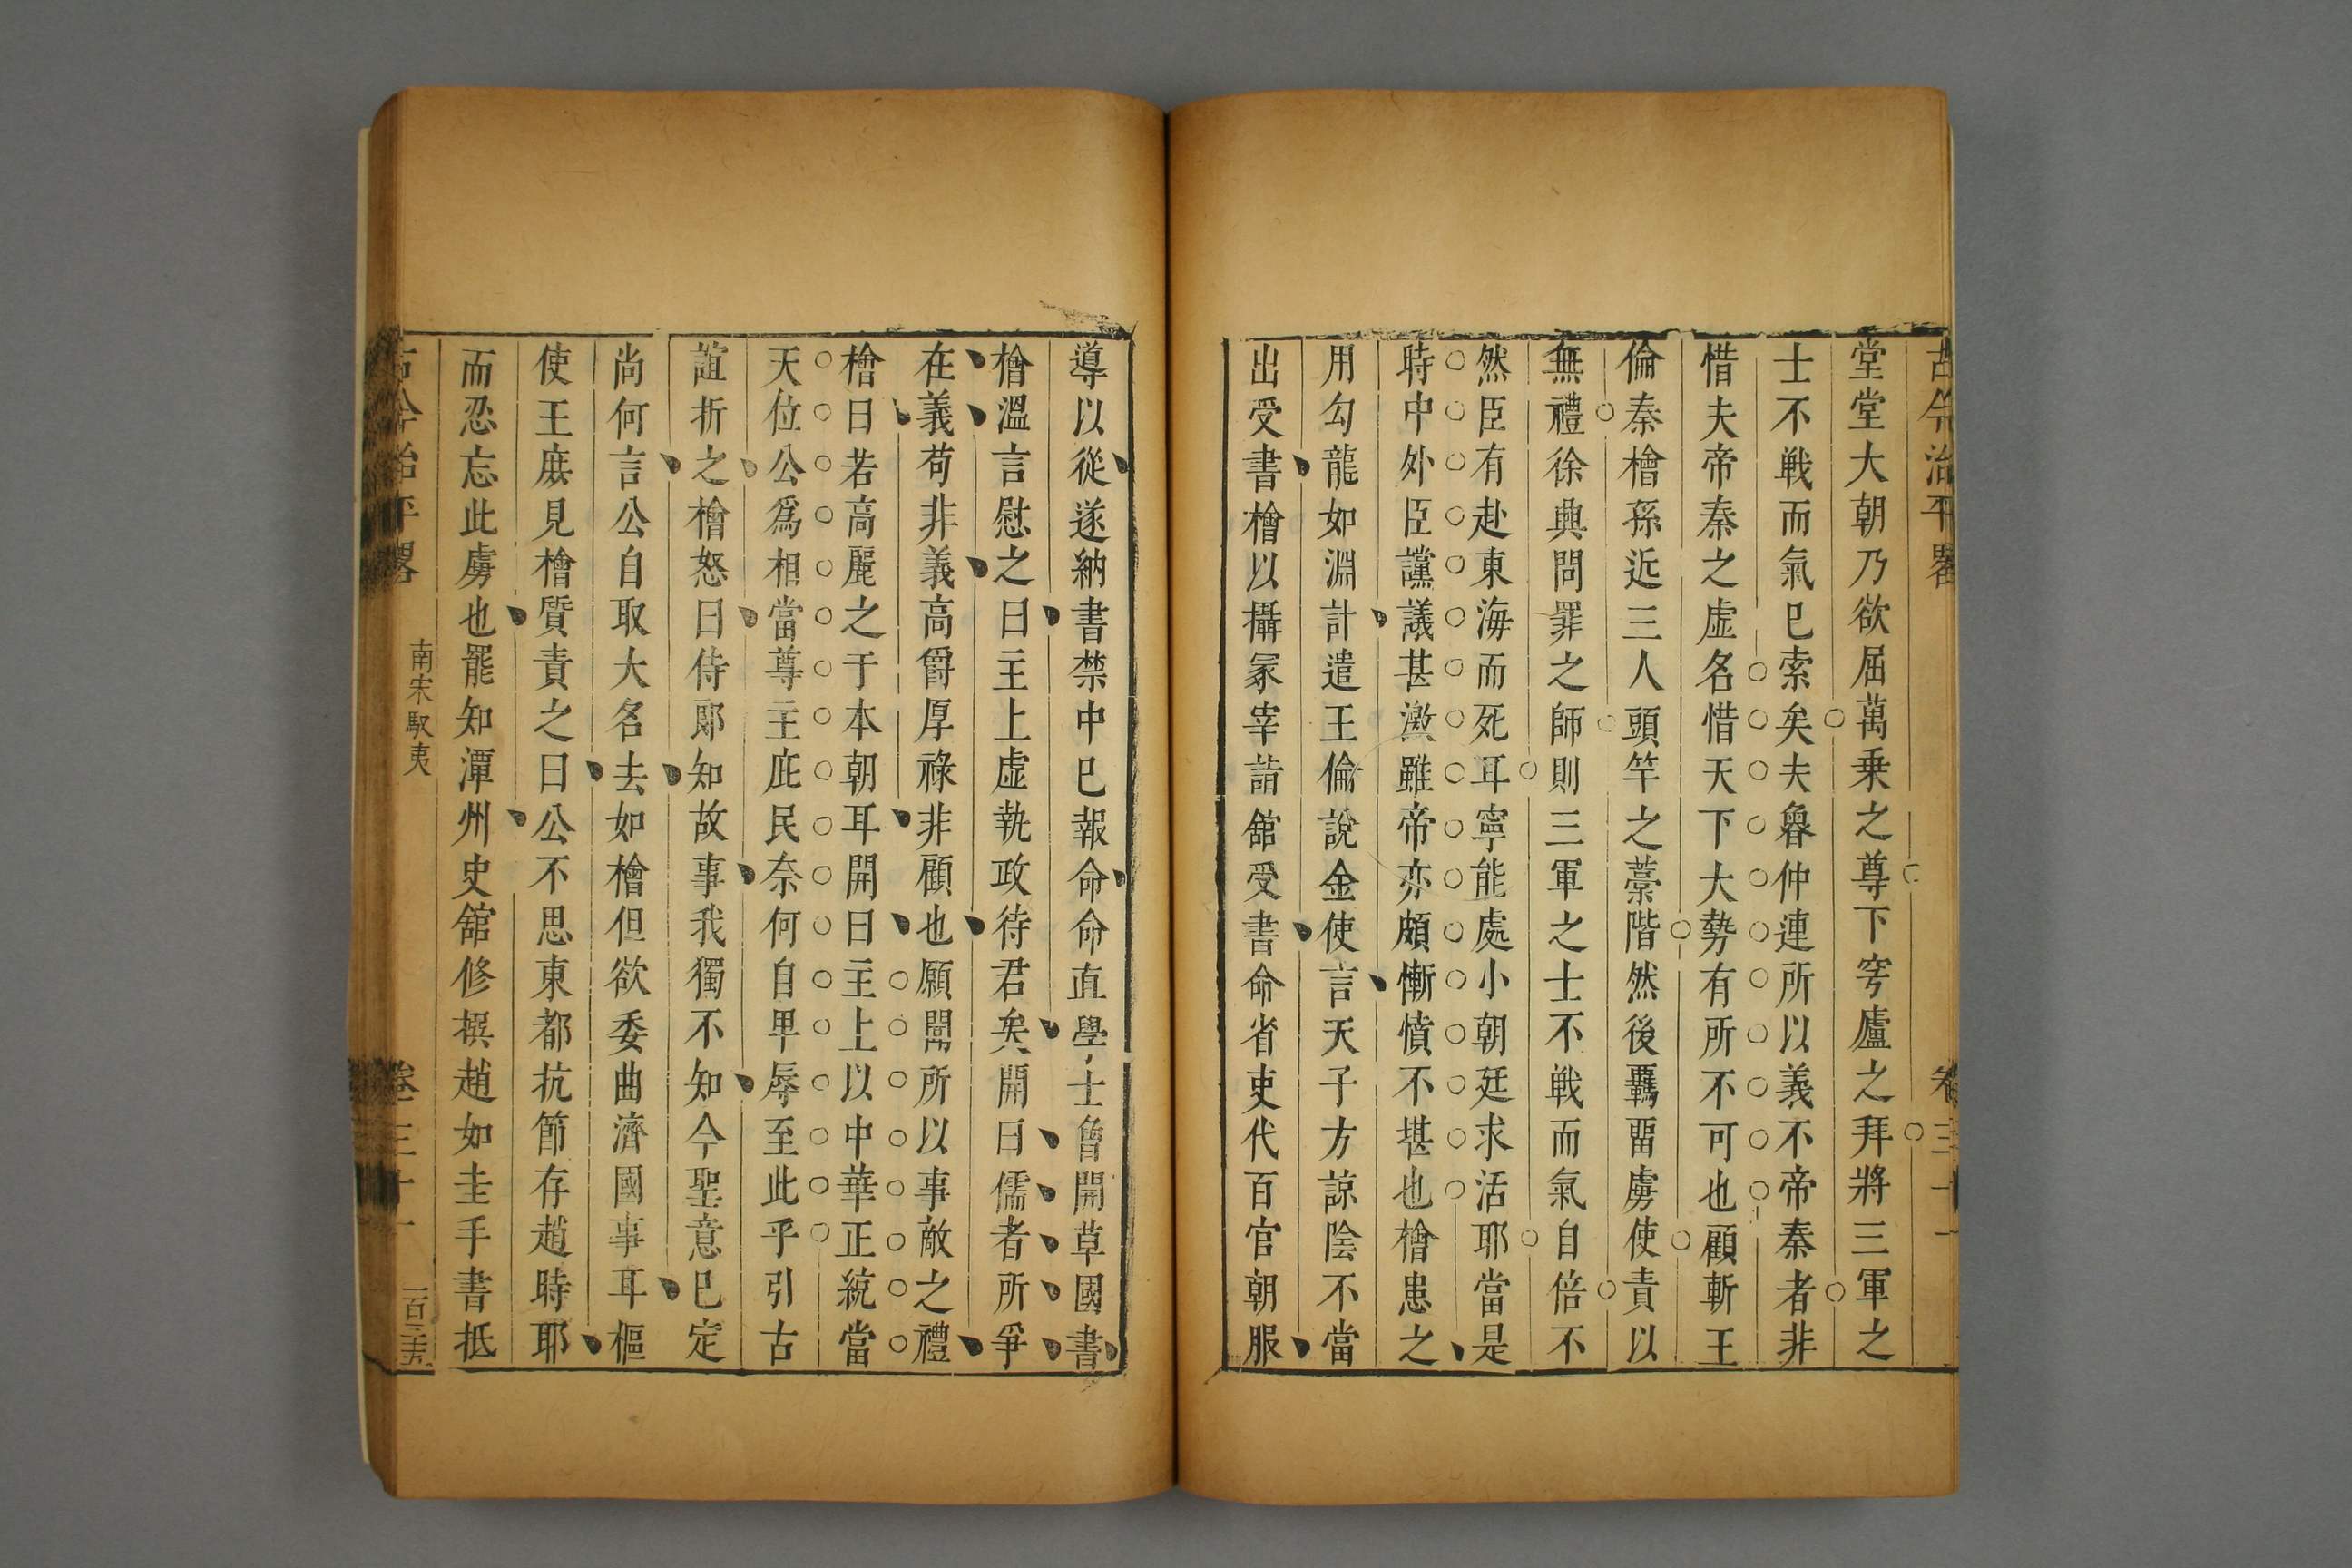 古今治平畧
卷三十一
堂堂大朝乃欲屈萬乗之尊下穹廬之拜將三軍之
士不戰而氣已索矣夫魯仲連所以義不帝秦者非
惜夫帝秦之虛名惜天下大勢有所不可也顧斬王
倫秦檜孫近三人頭竿之藁階然後羈畱虜使責以
無禮徐興問罪之師則三軍之士不戰而氣自倍不
然臣有赴東海而死耳寧能處小朝廷求活耶當是
時中外臣讜議甚激雖帝亦頗慚憤不堪也檜患之
用勾龍如淵計遣王倫說金使言天子方諒陰不當
出受書檜以攝冢宰詣舘受書命省吏代百官朝服
導以從遂納書禁中已報命命直學士曾開草國書
檜溫言慰之曰主上虛執政待君矣開曰儒者所爭
在義苟非義高爵厚祿非顧也願聞所以事敵之禮
檜曰若高麗之于本朝耳開曰主上以中華正統當
天位公爲相當尊主庇民奈何自卑辱至此乎引古
誼折之檜怒曰侍郎知故事我獨不知今聖意已定
尚何言公自取大名去如檜但欲委曲濟國事耳樞
使王庶見檜質責之曰公不思東都抗節存趙時耶
而忍忘此虜也罷知潭州史舘修撰趙如圭手書抵
古今治平畧
南宋馭夷
卷三十一